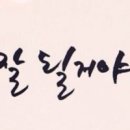 잘 될거야